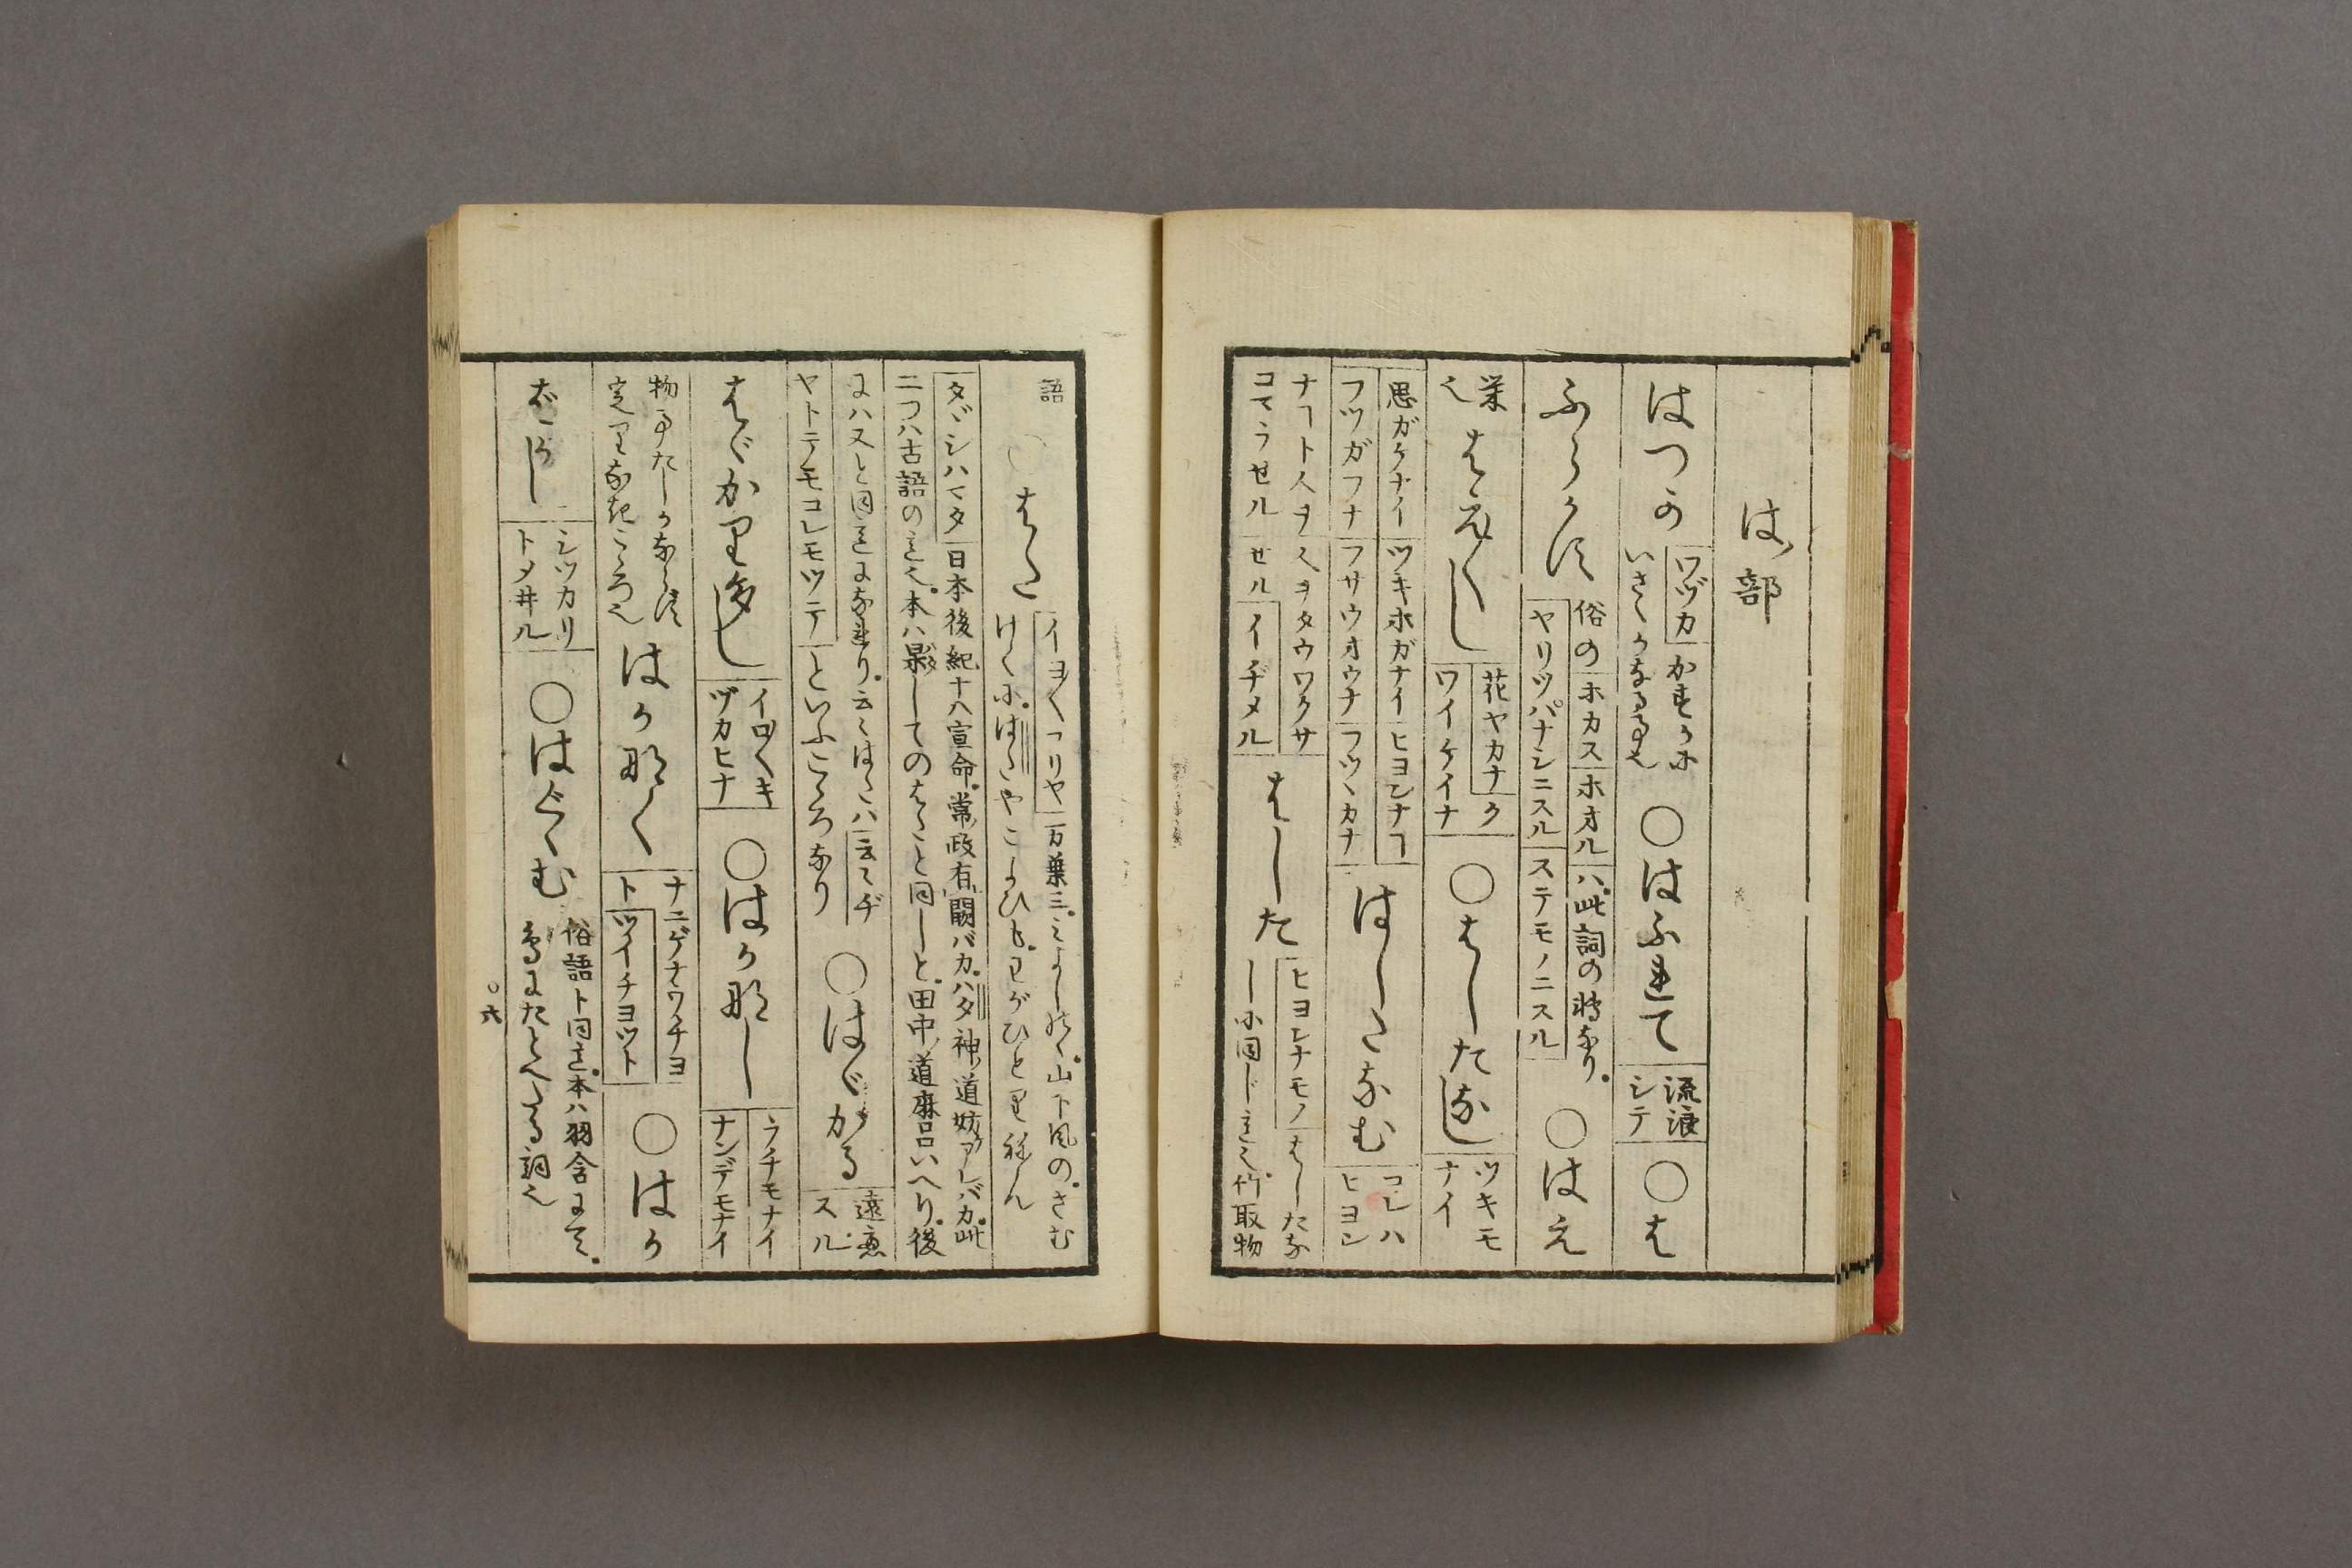 は部
はつか
ワヅカ
かすかに
いさゝかなる也
○はふれて
流浪
シテ
○は
ふらかす
俗の
ホカス
ホオル
ハ此詞の轉なり
ヤリツパナシニスル
ステモノニスル
○はえ
栄
也
はえ〳〵し
花ヤカナ
ク
ワイケイナ
○はしたなし
ツキモ
ナイ
思ガケナイ
ツキホガナイ
ヒヨンナコ
フツガフナ
フサウオウナ
フツヽカナ
はしたなむ
コレハ
ヒヨン
ナコト人ヲ
人ヲタウワクサ
コマラセル
セル
イヂメル
はした
ヒヨンナモノ
はしたな
しに同じ意也竹取物
語
○はた
イヨ〳〵
マリヤ
万葉三みよしのゝ山下風のさむ
けくにはたやこよひもわがひとりねん
タヾシハマタ
日本後紀十八宣命常政有闕バカハタ神道妨アレバカ此
二つハ古語の意也本ハ果してのはたと同しと田中道麻呂いへり後
にハ又と同意になれり云々はたハ
云々ヂ
ヤトテモコレモツテ
といふこゝろなり
○はゞかる
遠慮
スル
はゞかり多し
イロ〳〵キ
ヅカヒナ
○はかなし
ラチモナイ
ナンデモナイ
物事たしかならず
定りなきこゝろ也
はかなく
ナニゲナウチヨ
ト
ツイチヨツト
○はか
ばかし
シツカリ
トメ井ル
○はぐくむ
俗語ト同意本ハ羽含にて
鳥にたとへたる詞也
○六